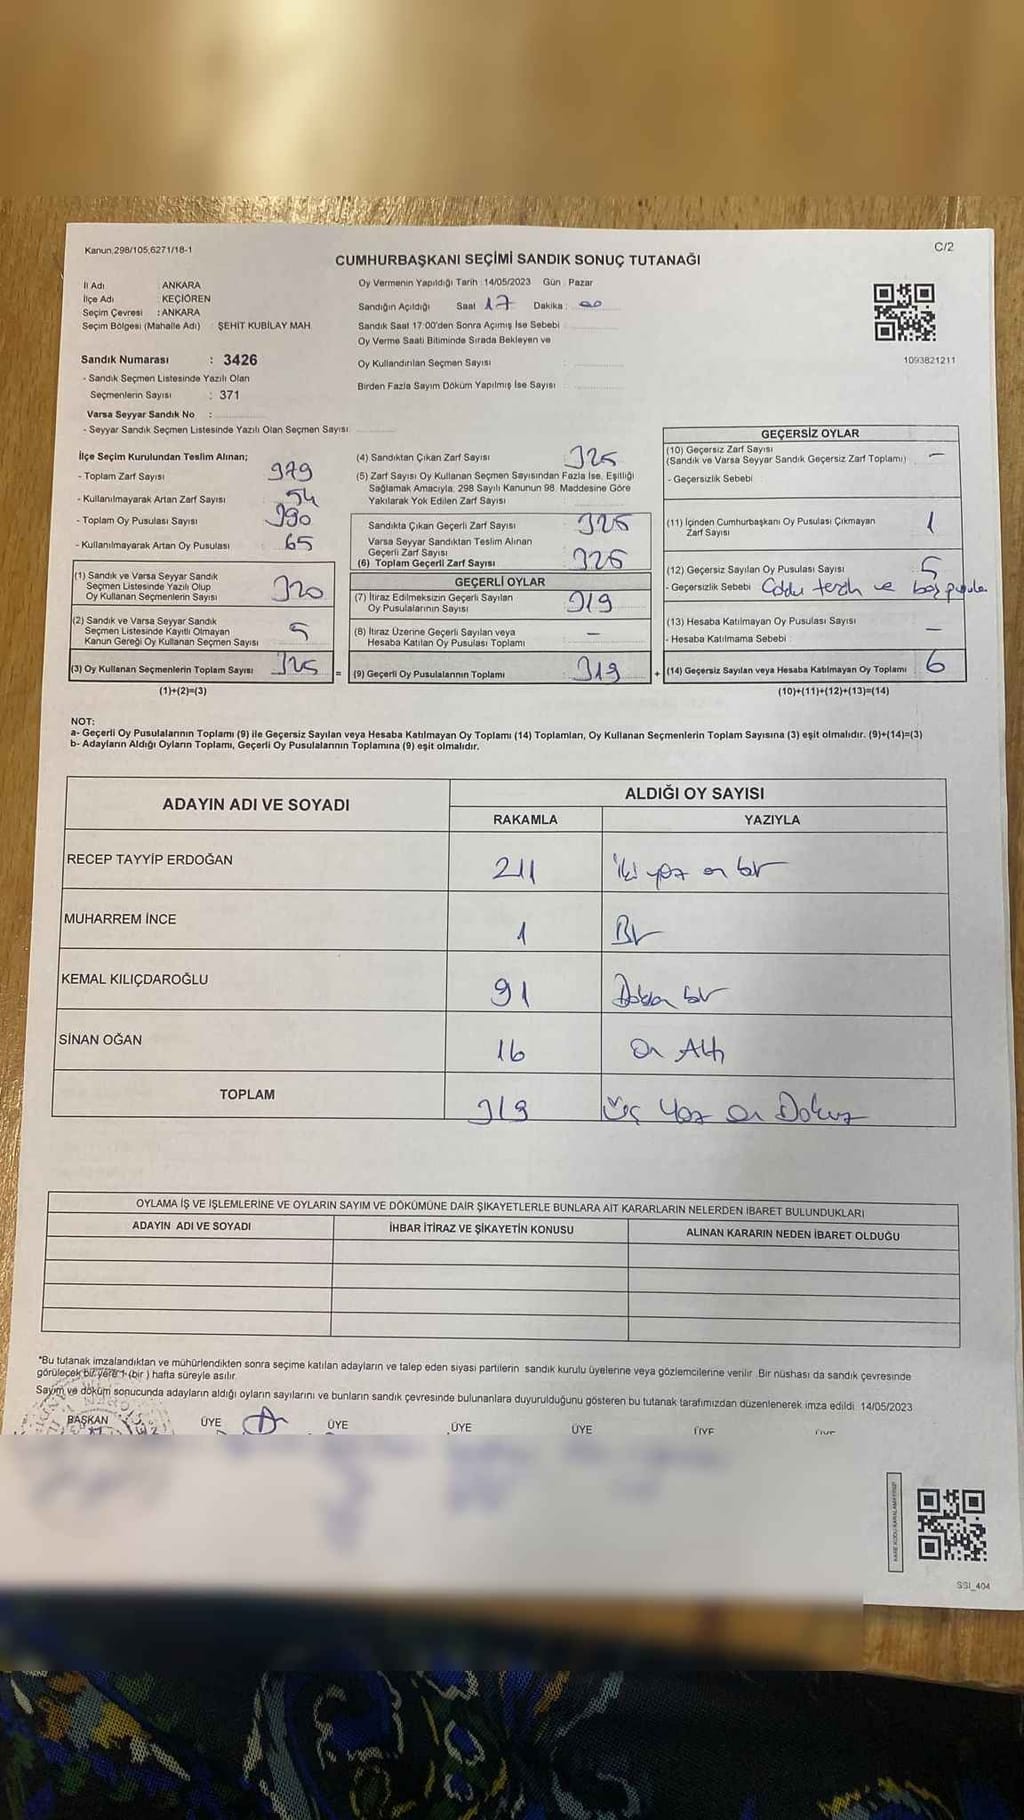 Kanun,298/105,6271/18-1
C/2
CUMHURBAŞKANI SEÇİMİ SANDIK SONUÇ TUTANAĞI
İl Adı : ANKARA
İlçe Adı : KEÇİÖREN
Seçim Çevresi : ANKARA
Seçim Bölgesi (Mahalle Adı) : ŞEHİT KUBİLAY MAH.
Sandık Numarası : 3426
- Sandık Seçmen Listesinde Yazılı Olan
Seçmenlerin Sayısı : 371
Varsa Seyyar Sandık No :
- Seyyar Sandık Seçmen Listesinde Yazılı Olan Seçmen Sayısı
Oy Vermenin Yapıldığı Tarih :14/05/2023 Gün : Pazar
Sandığın Açıldığı Saat 17 Dakika : 00
Sandık Saat 17:00'den Sonra Açımış İse Sebebi
Oy Verme Saati Bitiminde Sırada Bekleyen ve
Oy Kullandırılan Seçmen Sayısı
Birden Fazla Sayım Döküm Yapılmış İse Sayısı
1093821211
İlçe Seçim Kurulundan Teslim Alınan;
- Toplam Zarf Sayısı 379
- Kullanılmayarak Artan Zarf Sayısı 54
- Toplam Oy Pusulası Sayısı 390
- Kullanılmayarak Artan Oy Pusulası 65
(1) Sandık ve Varsa Seyyar Sandık
Seçmen Listesinde Yazılı Olup
Oy Kullanan Seçmenlerin Sayısı 320
(2) Sandık ve Varsa Seyyar Sandık
Seçmen Listesinde Kayıtlı Olmayan
Kanun Gereği Oy Kullanan Seçmen Sayısı 5
(3) Oy Kullanan Seçmenlerin Toplam Sayısı 325 =
(1)+(2)=(3)
(4) Sandıktan Çıkan Zarf Sayısı 325
(5) Zarf Sayısı Oy Kullanan Seçmen Sayısından Fazla İse, Eşitliği
Sağlamak Amacıyla, 298 Sayılı Kanunun 98. Maddesine Göre
Yakılarak Yok Edilen Zarf Sayısı
Sandıkta Çıkan Geçerli Zarf Sayısı 325
Varsa Seyyar Sandıktan Teslim Alınan
Geçerli Zarf Sayısı
(6) Toplam Geçerli Zarf Sayısı 325
GEÇERLİ OYLAR
(7) İtiraz Edilmeksizin Geçerli Sayılan
Oy Pusulalarının Sayısı 319
(8) İtiraz Üzerine Geçerli Sayılan veya
Hesaba Katılan Oy Pusulaları Toplamı –
(9) Geçerli Oy Pusulalarının Toplamı 319 +
GEÇERSİZ OYLAR
(10) Geçersiz Zarf Sayısı
(Sandık ve Varsa Seyyar Sandık Geçersiz Zarf Toplamı) –
- Geçersizlik Sebebi
(11) İçinden Cumhurbaşkanı Oy Pusulası Çıkmayan
Zarf Sayısı 1
(12) Geçersiz Sayılan Oy Pusulası Sayısı 5
- Geçersizlik Sebebi ve boş pusula
(13) Hesaba Katılmayan Oy Pusulası Sayısı
- Hesaba Katılmama Sebebi –
(14) Geçersiz Sayılan veya Hesaba Katılmayan Oy Toplamı 6
(10)+(11)+(12)+(13)=(14)
NOT:
a- Geçerli Oy Pusulalarının Toplamı (9) ile Geçersiz Sayılan veya Hesaba Katılmayan Oy Toplamı (14) Toplamları, Oy Kullanan Seçmenlerin Toplam Sayısına (3) eşit olmalıdır. (9)+(14)=(3)
b- Adayların Aldığı Oyların Toplamı, Geçerli Oy Pusulalarının Toplamına (9) eşit olmalıdır.
ADAYIN ADI VE SOYADI
ALDIĞI OY SAYISI
RAKAMLA YAZIYLA
RECEP TAYYİP ERDOĞAN 211 İki yüz on bir
MUHARREM İNCE 1 Bir
KEMAL KILIÇDAROĞLU 91 Doksan bir
SİNAN OĞAN 16 On Altı
TOPLAM 319 Üç Yüz On Dokuz
OYLAMA İŞ VE İŞLEMLERİNE VE OYLARIN SAYIM VE DÖKÜMÜNE DAİR ŞİKAYETLERLE BUNLARA AİT KARARLARIN NELERDEN İBARET BULUNDUKLARI
ADAYIN ADI VE SOYADI İHBAR İTİRAZ VE ŞİKAYETİN KONUSU ALINAN KARARIN NEDEN İBARET OLDUĞU
*Bu tutanak imzalandıktan ve mühürlendikten sonra seçime katılan adayların ve talep eden siyasi partilerin sandık kurulu üyelerine veya gözlemcilerine verilir. Bir nüshası da sandık çevresinde
görülecek bir yere 1 (bir ) hafta süreyle asılır.
Sayım ve döküm sonucunda adayların aldığı oyların sayılarını ve bunların sandık çevresinde bulunanlara duyurulduğunu gösteren bu tutanak tarafımızdan düzenlenerek imza edildi. 14/05/2023
BAŞKAN ÜYE ÜYE ÜYE ÜYE ÜYE ÜYE
SSI_404